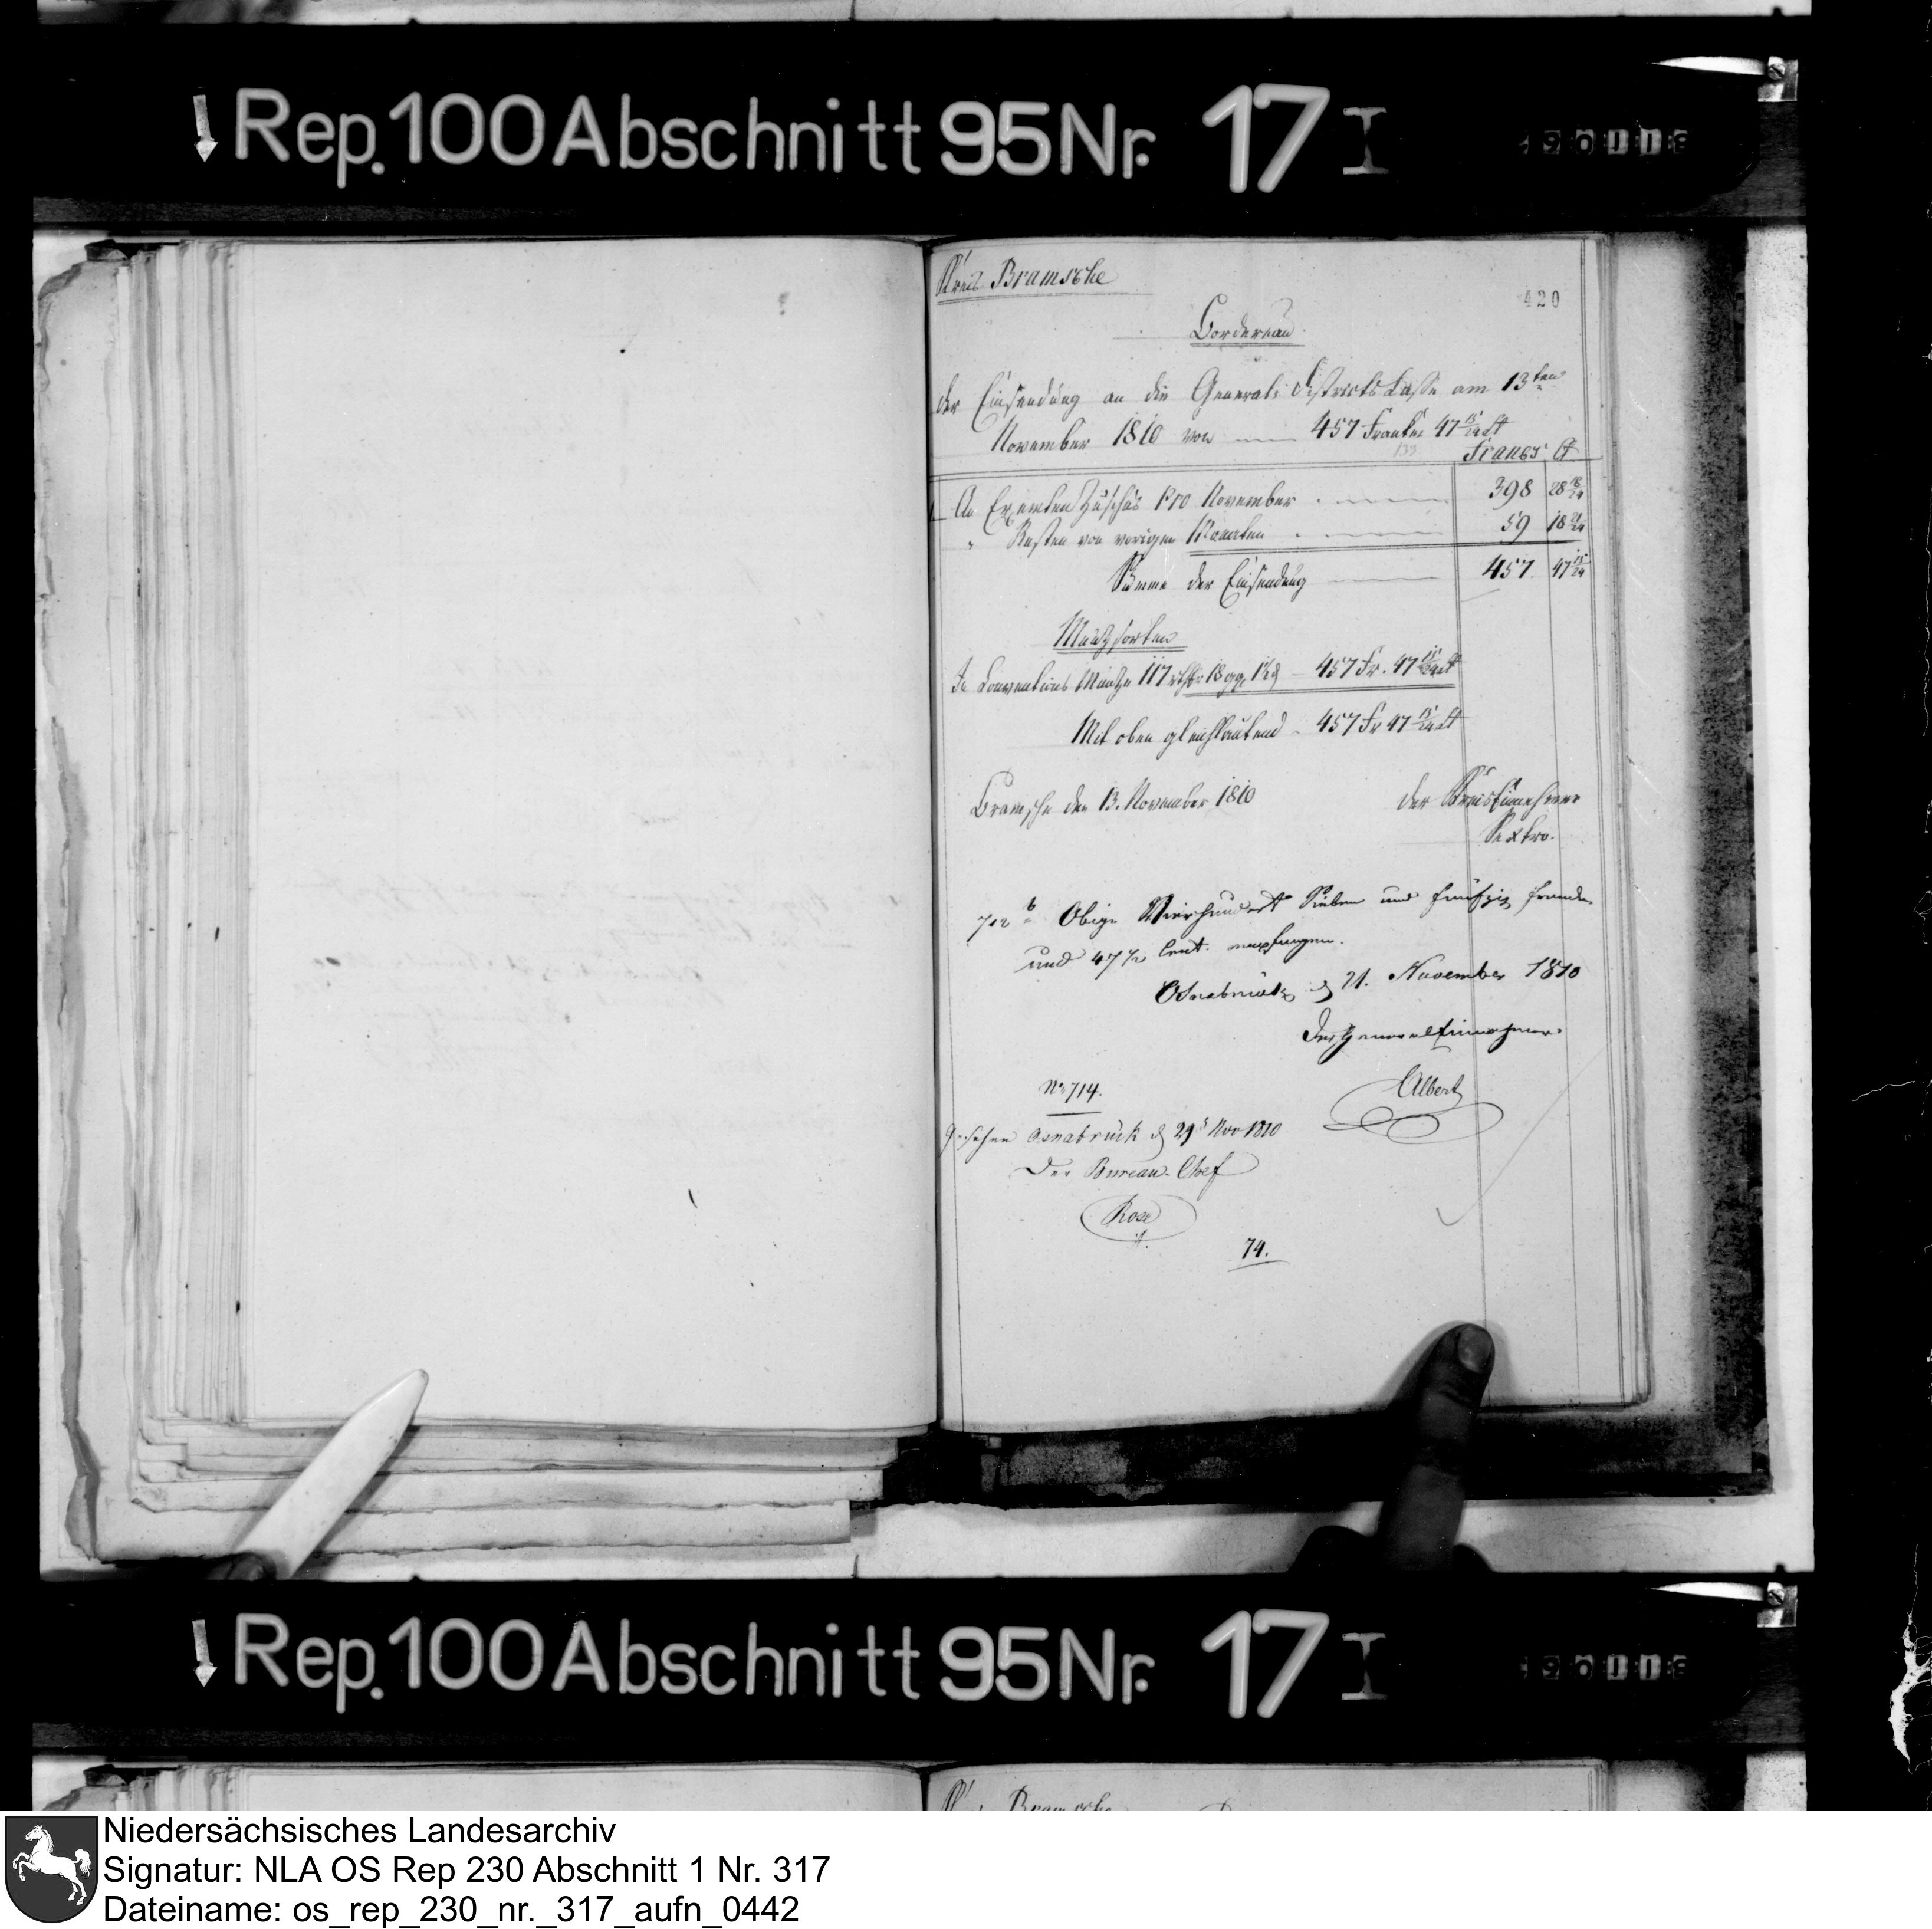 Rep. 100 Abschnitt 95 Nr. 17 I
Kreis Bramsche
420
Bordereau
der Einsendung an die General-Districts Casse am 13ten
November 1810 von 457 Franken 47 15/24 Ct
Francs Ct
An Exemten Zuschus pro November 398 28 18/24
" Resten von vorigen Monaten 59 18 21/24
Summe der Einsendung 457 47 15/24
Münzsorten
In Conventions Münze 117 rthlr 18 ggr 457 Fr. 47 15/24 Ct
Mit oben gleichlautend 457 Fr 47 15/24 Ct
Bramsche den 13. November 1810 der Kreiseinnehmer
Sextro.
712 b Obige Vierhundert Sieben und funfzig franken
und 47 1/2 Cent. empfangen.
Osnabrück d 21. November 1810
Der Generaleinnehmer
Albert
No 714.
Gesehen Osnabrück d 29 Nov 1810
Der Bureau-Chef
Rose
74.
Rep. 100 Abschnitt 95 Nr. 17 I
Kreis Bramsche
Niedersächsisches Landesarchiv
Signatur: NLA OS Rep 230 Abschnitt 1 Nr. 317
Dateiname: os_rep_230_nr._317_aufn_0442